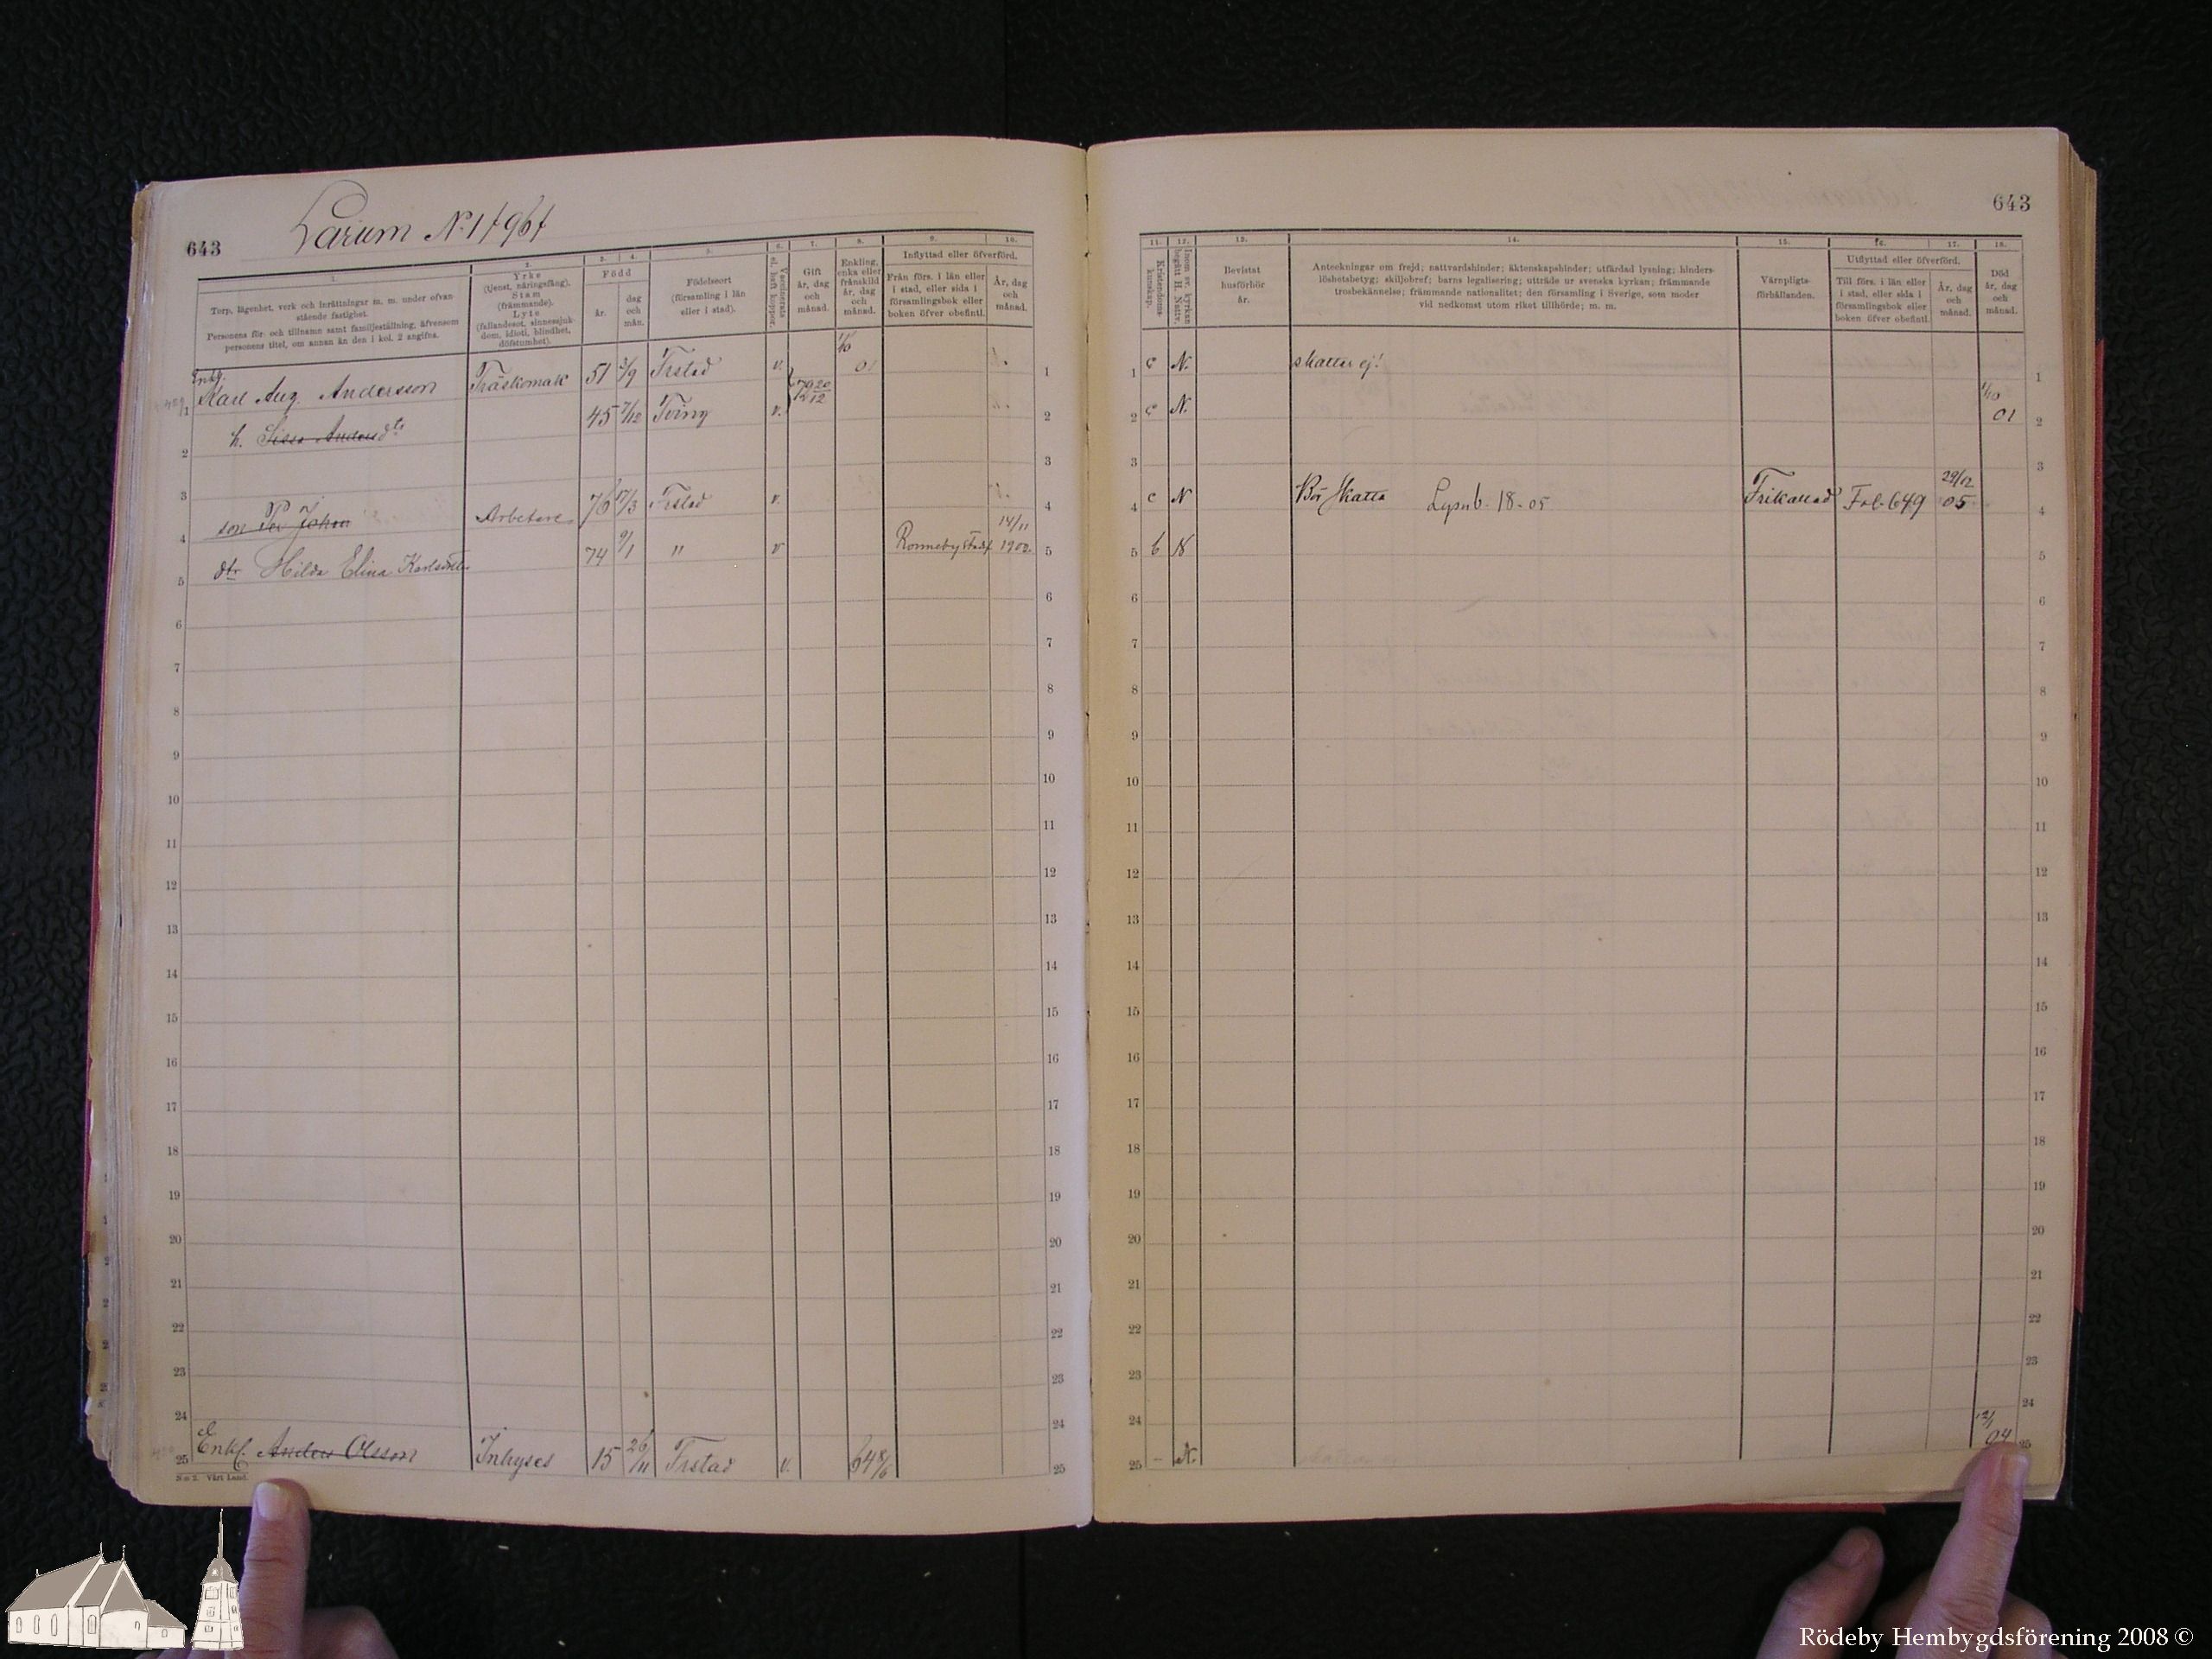 643
Larum No 1 f 96 f
1. 2. 3. 4. 5. 6. 7. 8. 9. 10.
Torp, lägenhet, verk och inrättningar m. m. under ofvanstående fastighet.
Personens för- och tillnamn samt familjeställning, äfvensom personens titel, om annan än den i kol. 2 angifna.
Yrke
(tjenst, näringsfång).
Stam
(främmande).
Lyte
(fallandesot, sinnessjukdom, idioti, blindhet, döfstumhet).
Född
år.
dag och mån.
Födelseort
(församling i län eller i stad).
Vaccinerats el. haft koppor.
Gift
år, dag och månad.
Enkling, enka eller frånskild år, dag och månad.
Inflyttad eller öfverförd.
Från förs. i län eller i stad, eller sida i församlingsbok eller boken öfver obefintl.
År, dag och månad.
Enkg.
1 Karl Aug. Andersson Träskomak 51 3/9 Frstad v. 79 20/12 1/10 01 1
2 h. Sissa Andersdtr 45 7/12 Tving v. 2
3 3
4 son Per Johan Arbetare 76 17/3 Frstad v. 4
5 dtr Hilda Elina Karlsdotter 74 9/1 " v Ronneby stadsf 14/11 1902. 5
6 6
7 7
8 8
9 9
10 10
11 11
12 12
13 13
14 14
15 15
16 16
17 17
18 18
19 19
20 20
21 21
22 22
23 23
24 24
25 Enkl. Anders Olsson Inhyses 15 26/11 Frstad v. 64 8/6 25
N:o 2. Vårt Land.
643
11. 12. 13. 14. 15. 16. 17. 18.
Kristendomskunskap.
Inom sv. kyrkan begått H. Nattv.
Bevistat husförhör år.
Anteckningar om frejd; nattvardshinder; äktenskapshinder; utfärdad lysning; hinderslöshetsbetyg; skiljobref; barns legalisering; utträde ur svenska kyrkan; främmande trosbekännelse; främmande nationalitet; den församling i Sverige, som moder vid nedkomst utom riket tillhörde; m. m.
Värnpligtsförhållanden.
Utflyttad eller öfverförd.
Till förs. i län eller i stad, eller sida i församlingsbok eller boken öfver obefintl.
År, dag och månad.
Död
år, dag och månad.
1 c N. skatter ej! 1
2 c N. 1/10 01 2
3 3
4 c N Bör skatta Lysnb. 18-05 Frikallad Fol. 649 29/12 05 4
5 b N 5
6 6
7 7
8 8
9 9
10 10
11 11
12 12
13 13
14 14
15 15
16 16
17 17
18 18
19 19
20 20
21 21
22 22
23 23
24 24
25 - N. 12/1 04 25
Rödeby Hembygdsförening 2008 ©